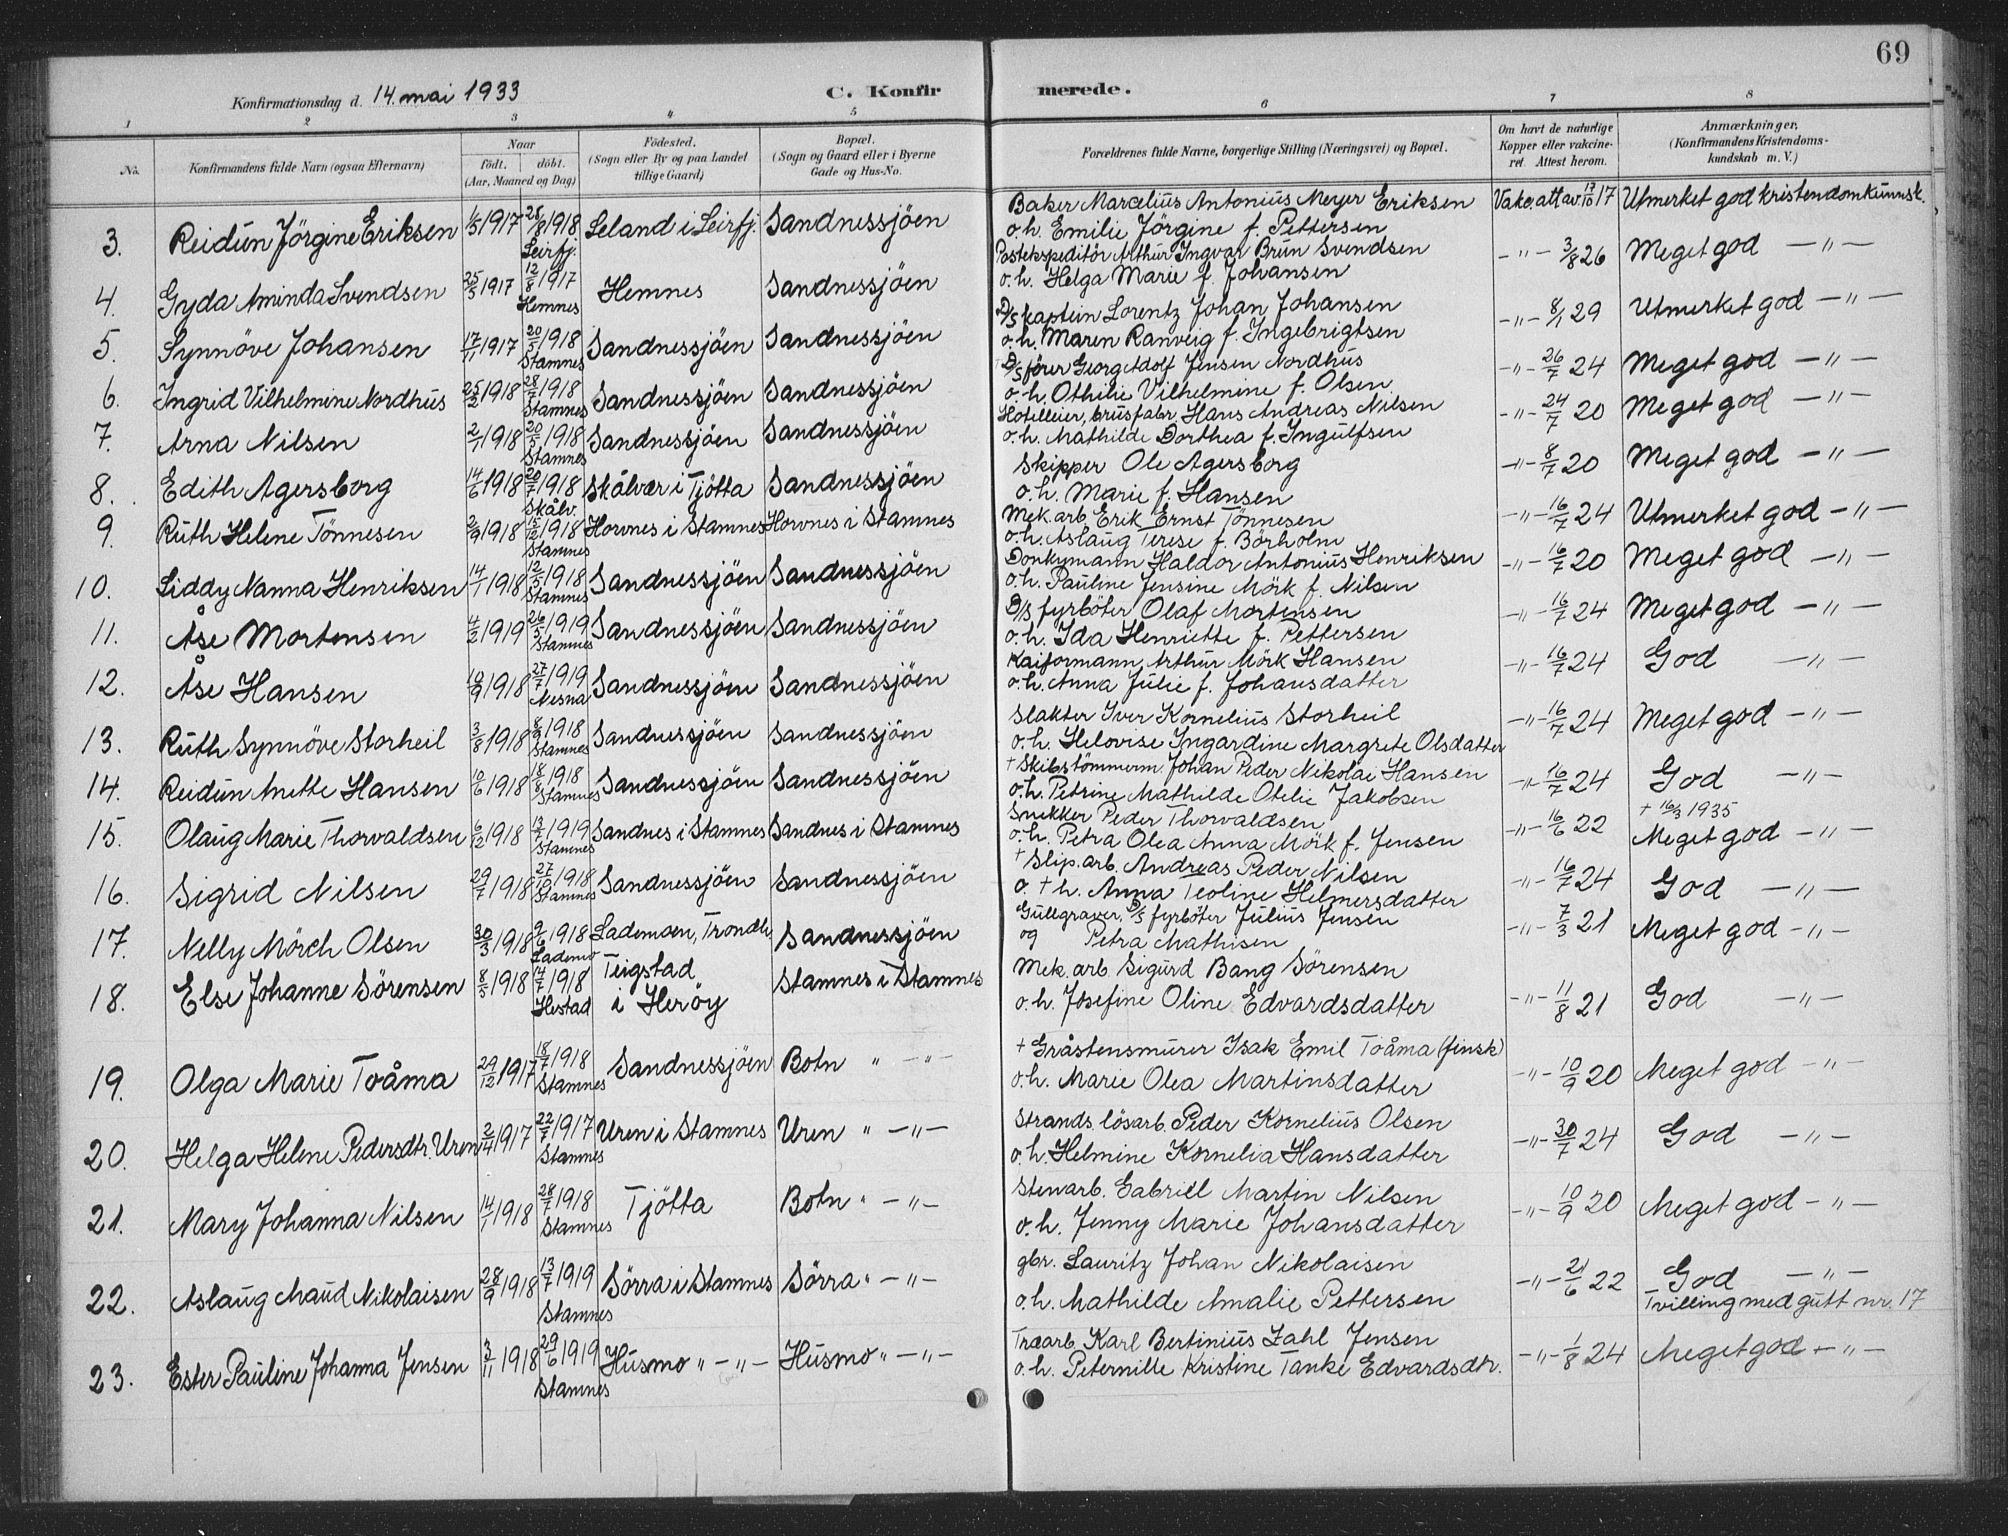 69
Konfirmationsdag d. 14. mai 1933 C. Konfirmerede.
1 2 3 4 5 6 7 8
No. Konfirmandens fulde Navn (ogsaa Efternavn) Naar født. døbt. (Aar, Maaned og Dag) Födested. (Sogn eller By og paa Landet tillige Gaard) Bopæl. (Sogn og Gaard eller i Byerne Gade og Hus-No. Forældrenes fulde Navne, borgerlige Stilling (Næringsvei) og Bopæl. Om havt de naturlige Kopper eller vakcineret. Attest herom. Anmærkninger, (Konfirmandens Kristendomskundskab m. V.)
3. Reidun Jörgine Eriksen 1/5 1917 28/8 1918 Leirfj. Leland i Leirfj. Sandnessjöen Baker Marcelius Antonius Meyer Eriksen Vakc. att av 17/10 17 Utmerket god kristendomkunnsk.
o. h. Emilie Jörgine f. Pettersen
4. Gyda Aminda Svendsen 25/5 1917 12/8 1917 Hemnes Hemnes Sandnessjöen Postekspeditör Arthur Ingvar Brun Svendsen -"- 3/8 26 Meget god -"-
o. h. Helga Marie f. Johansen
5. Synnöve Johansen 17/11 1917 20/5 1918 Stamnes Sandnessjöen Sandnessjöen D/S kaptein Lorentz Johan Johansen -"- 8/1 29 Utmerket god -"-
o. h. Maren Ranveig f. Ingebrigtsen
6. Ingrid Vilhelmine Nordhus 25/2 1918 28/7 1918 Stamnes Sandnessjöen Sandnessjöen D/S förer Georg Adolf Jensen Nordhus -"- 26/7 24 Meget god -"-
o. h. Othilie Vilhelmine f. Olsen
7. Arna Nilsen 2/1 1918 20/5 1918 Stamnes Sandnessjöen Sandnessjöen Hotelleier, brusfabr. Hans Andreas Nilsen -"- 24/7 20 Meget god -"-
o. h. Mathilde Dorthea f. Ingulfsen
8. Edith Agersborg 14/6 1918 20/7 1918 Skålv. Skålvær i Tjötta Sandnessjöen Skipper Ole Agersborg -"- 8/7 20 Meget god -"-
o. h. Marie f. Hansen
9. Ruth Helene Tönnesen 2/9 1918 15/12 1918 Stamnes Horvnes i Stamnes Horvnes i Stamnes Mek. arb. Erik Ernst Tönnesen -"- 16/7 24 Utmerket god -"-
o. h. Aslaug Terese f. Börholm
10. Liddy Nanna Henriksen 14/1 1918 12/5 1918 Stamnes Sandnessjöen Sandnessjöen Donkymann Haldor Antonius Henriksen -"- 16/7 20 Meget god -"-
o. h. Pauline Jensine Mörk f. Nilsen
11. Åse Mortensen 4/2 1919 26/5 1919 Stamnes Sandnessjöen Sandnessjöen D/S fyrböter Olaf Mortensen -"- 16/7 24 Meget god -"-
o. h. Ida Henriette f. Pettersen
12. Åse Hansen 10/9 1918 27/7 1919 Nesna Sandnessjöen Sandnessjöen Kaiformann Arthur Mörk Hansen -"- 16/7 24 God -"-
o. h. Anna Julie f. Johansdatter
13. Ruth Synnöve Storheil 3/8 1918 8/9 1918 Stamnes Sandnessjöen Sandnessjöen Slakter Iver Kornelius Storheil -"- 16/7 24 Meget god -"-
o. h. Helovise Ingardine Margrete Olsdatter
14. Reidun Anette Hansen 10/6 1918 18/8 1918 Stamnes Sandnessjöen Sandnessjöen + Skibstömmerm. Johan Peder Nikolai Hansen -"- 16/7 24 God -"-
o. h. Petrine Mathilde Otelie Jakobsen
15. Olaug Marie Thorvaldsen 6/12 1918 13/7 1919 Stamnes Sandnes i Stamnes Sandnes i Stamnes Snekker Peder Thorvaldsen -"- 16/6 22 + 16/3 1935 Meget god -"-
o. h. Petra Olea Anna Mörk f. Jensen
16. Sigrid Nilsen 29/7 1918 27/10 1918 Stamnes Sandnessjöen Sandnessjöen + Slip. arb. Andreas Peder Nilsen -"- 16/7 24 God -"-
o. + h. Anna Teoline Helmersdatter
17. Nelly Mörch Olsen 30/3 1918 9/6 1918 Lademo Lademoen, Trondh. Sandnessjöen Gullgraver, D/S fyrböter Julius Jensen -"- 7/3 21 Meget god -"-
og Petra Mathisen
18. Else Johanne Sörensen 8/5 1918 14/7 1918 Hestad Teigstad i Heröy Stamnes i Stamnes Mek. arb. Sigurd Bang Sörensen -"- 11/8 21 God -"-
o. h. Josefine Oline Edvardsdatter
19. Olga Marie Toåma 29/12 1917 18/7 1918 Stamnes Sandnessjöen Botn " -"- + Gråstensmurer Isak Emil Toåma (finsk) -"- 10/9 20 Meget god -"-
o. h. Marie Olea Martinsdatter
20. Helga Helene Pedersdtr. Uren 2/4 1917 22/7 1917 Stamnes Uren i Stamnes Uren " -"- Strands. lösarb. Peder Kornelius Olsen -"- 30/7 24 God -"-
o. h. Helmine Kornelia Hansdatter
21. Mary Johanna Nilsen 14/1 1918 28/7 1918 Stamnes Tjötta Botn " -"- Stenarb. Gabriell Martin Nilsen -"- 10/9 20 Meget god -"-
o. h. Jenny Marie Johansdatter
22. Aslaug Maud Nikolaisen 28/9 1918 13/7 1919 Stamnes Sörra i Stamnes Sörra " -"- gbr. Lauritz Johan Nikolaisen -"- 21/6 22 God -"-
o. h. Mathilde Amalie Pettersen Tvilling med gutt nr. 17
23. Ester Pauline Johanna Jensen 3/11 1918 29/6 1919 Stamnes Husmo " -"- Husmo " -"- Træarb. Karl Bertinius Zahl Jensen -"- 1/8 24 Meget god -"-
o. h. Peternille Kristine Tanke Edvardsdtr.